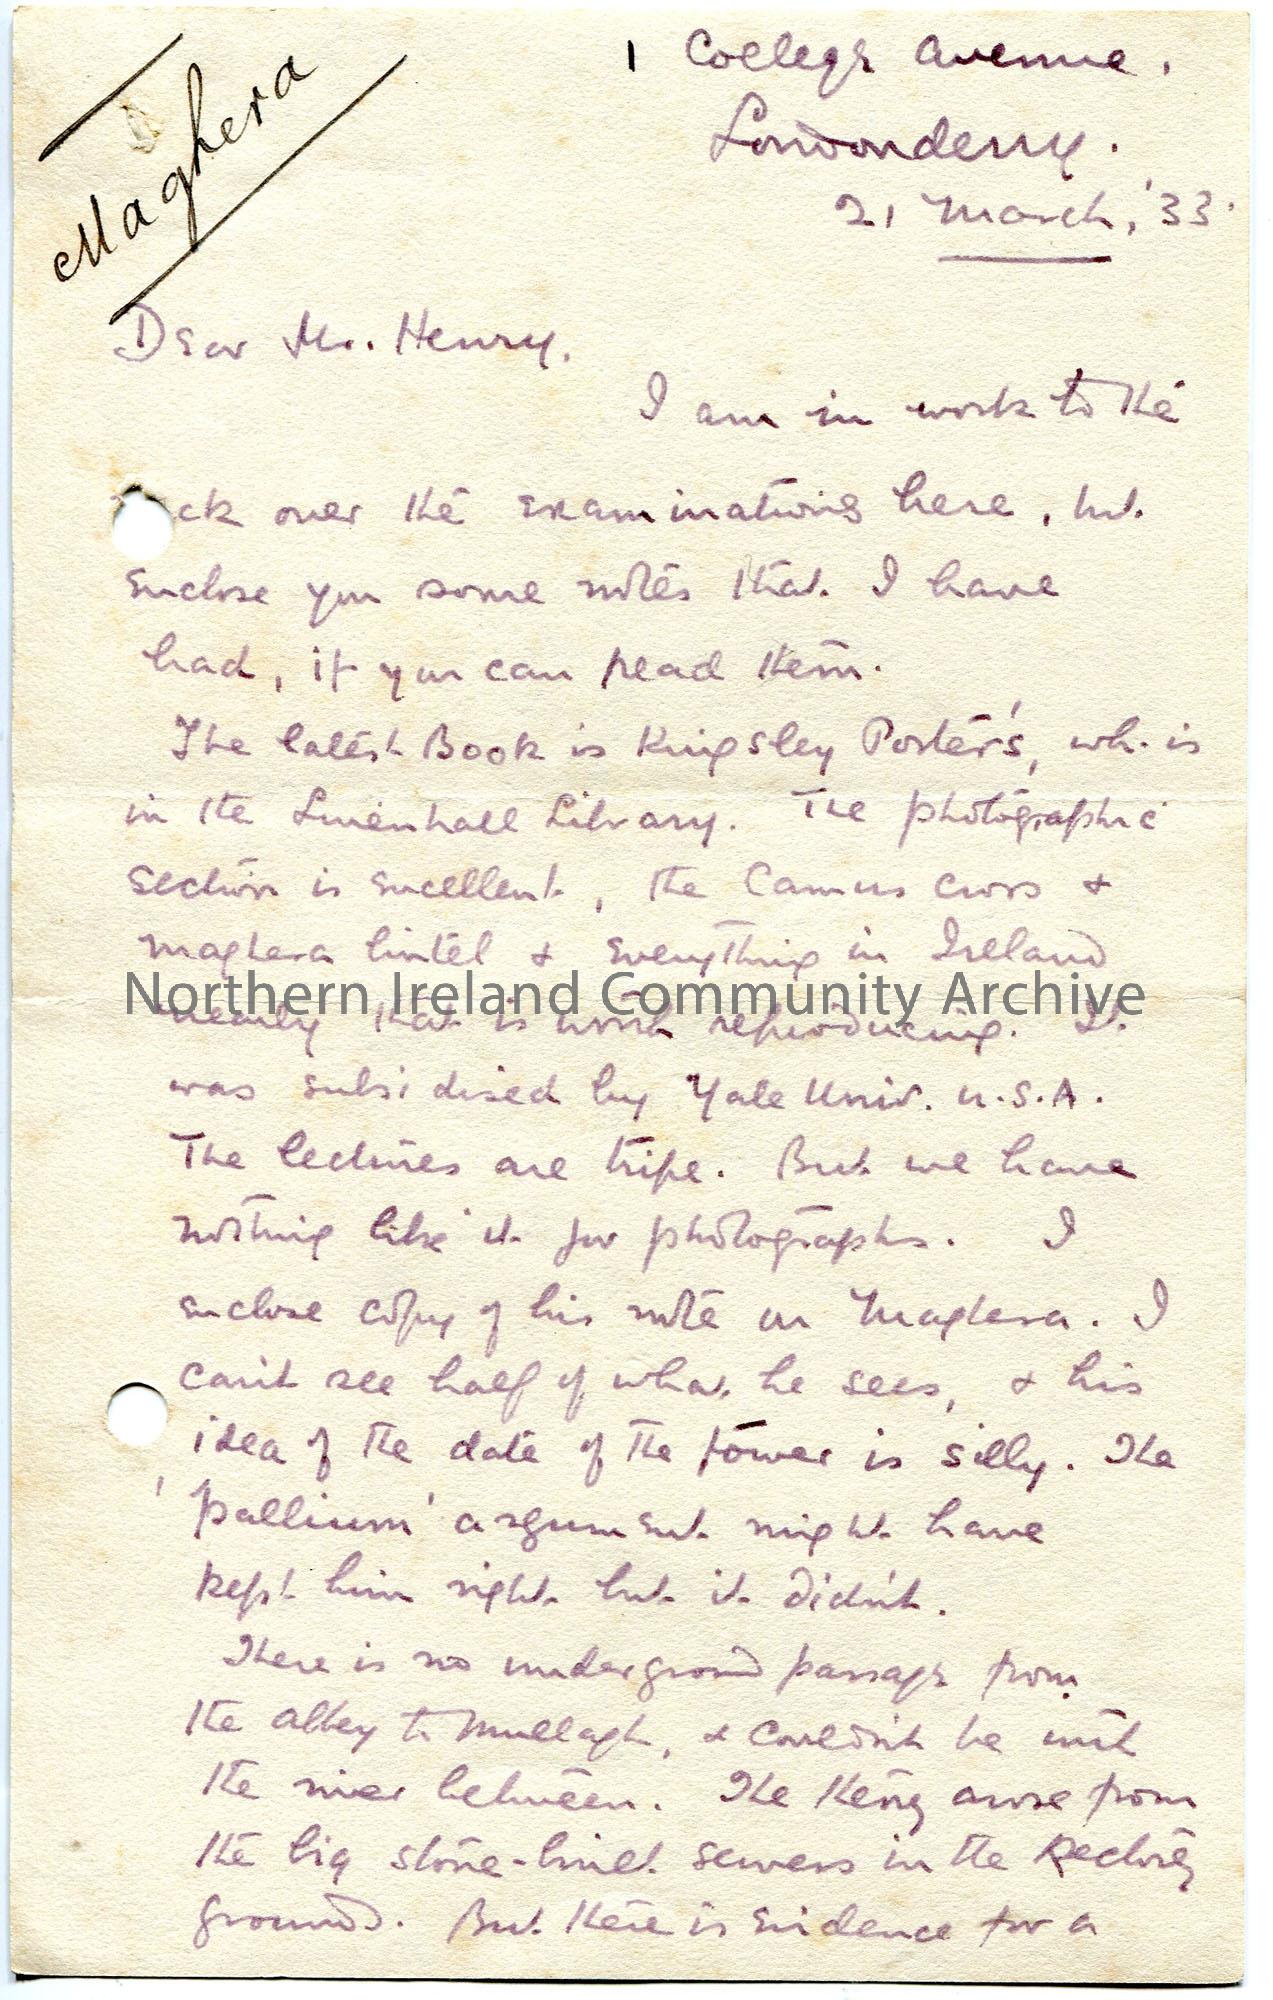 Maghera
1 College Avenue,
Londonderry.
21 March, '33.
Dear Mr. Henry,
I am in work to the
ck over the examinations here, but
enclose you some notes that I have
had, if you can read them.
The latest Book is Kingsley Porter's, wh. is
in the Linenhall Library. The photographic
section is excellent, the Camus cross &
Maghera lintel & everything in Ireland
Northern Ireland Community Archive
nearly that is worth reproducing. It
was subsidised by Yale Univ. U.S.A.
The lectures are tripe. But we have
nothing like it for photographs. I
enclose copy of his note on Maghera. I
can't see half of what he sees, & his
idea of the date of the tower is silly. The
'pallium' argument might have
kept him right but it didn't.
There is no underground passage from
the abbey to Mullagh, & couldn't be with
the river between. The theory arose from
the big stone-lined sewers in the Rectory
grounds. But there is evidence for a